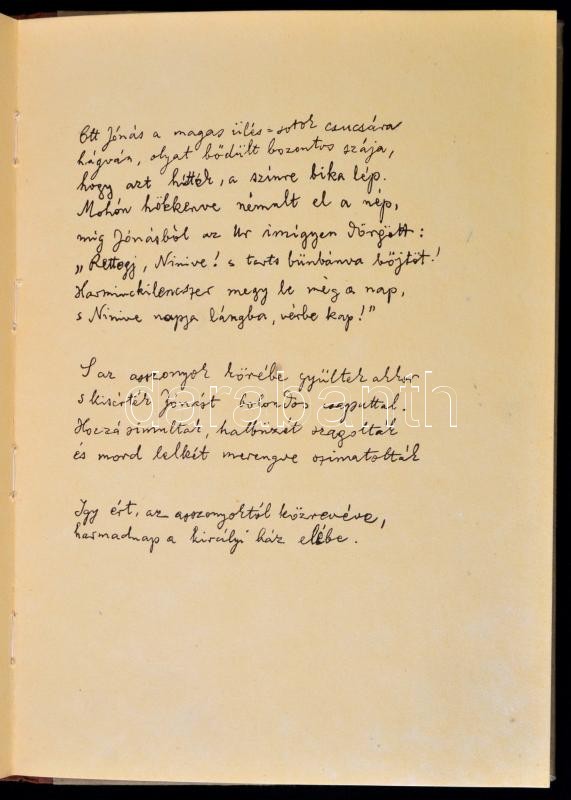 Ott Jónás a magas ülés-sorok csucsára
hágván, olyat bődült bozontos szája,
hogy azt hitték, a szinre bika lép.
Mohón hökkenve némult el a nép,
mig Jónásból az Ur imigyen dörgött:
„Rettegj, Ninive! s tarts bünbánva böjtöt!
Harminckilencszer megy le még a nap,
s Ninive napja lángba, vérbe kap!"
S az asszonyok körébe gyültek akkor
s kisérték Jónást bolondos csapattal.
Hozzá simultak, halbüzét szagolták
és mord lelkét merengve szimatolták
Igy ért, az asszonyoktól közrevéve,
harmadnap a királyi ház elébe.
darabanth